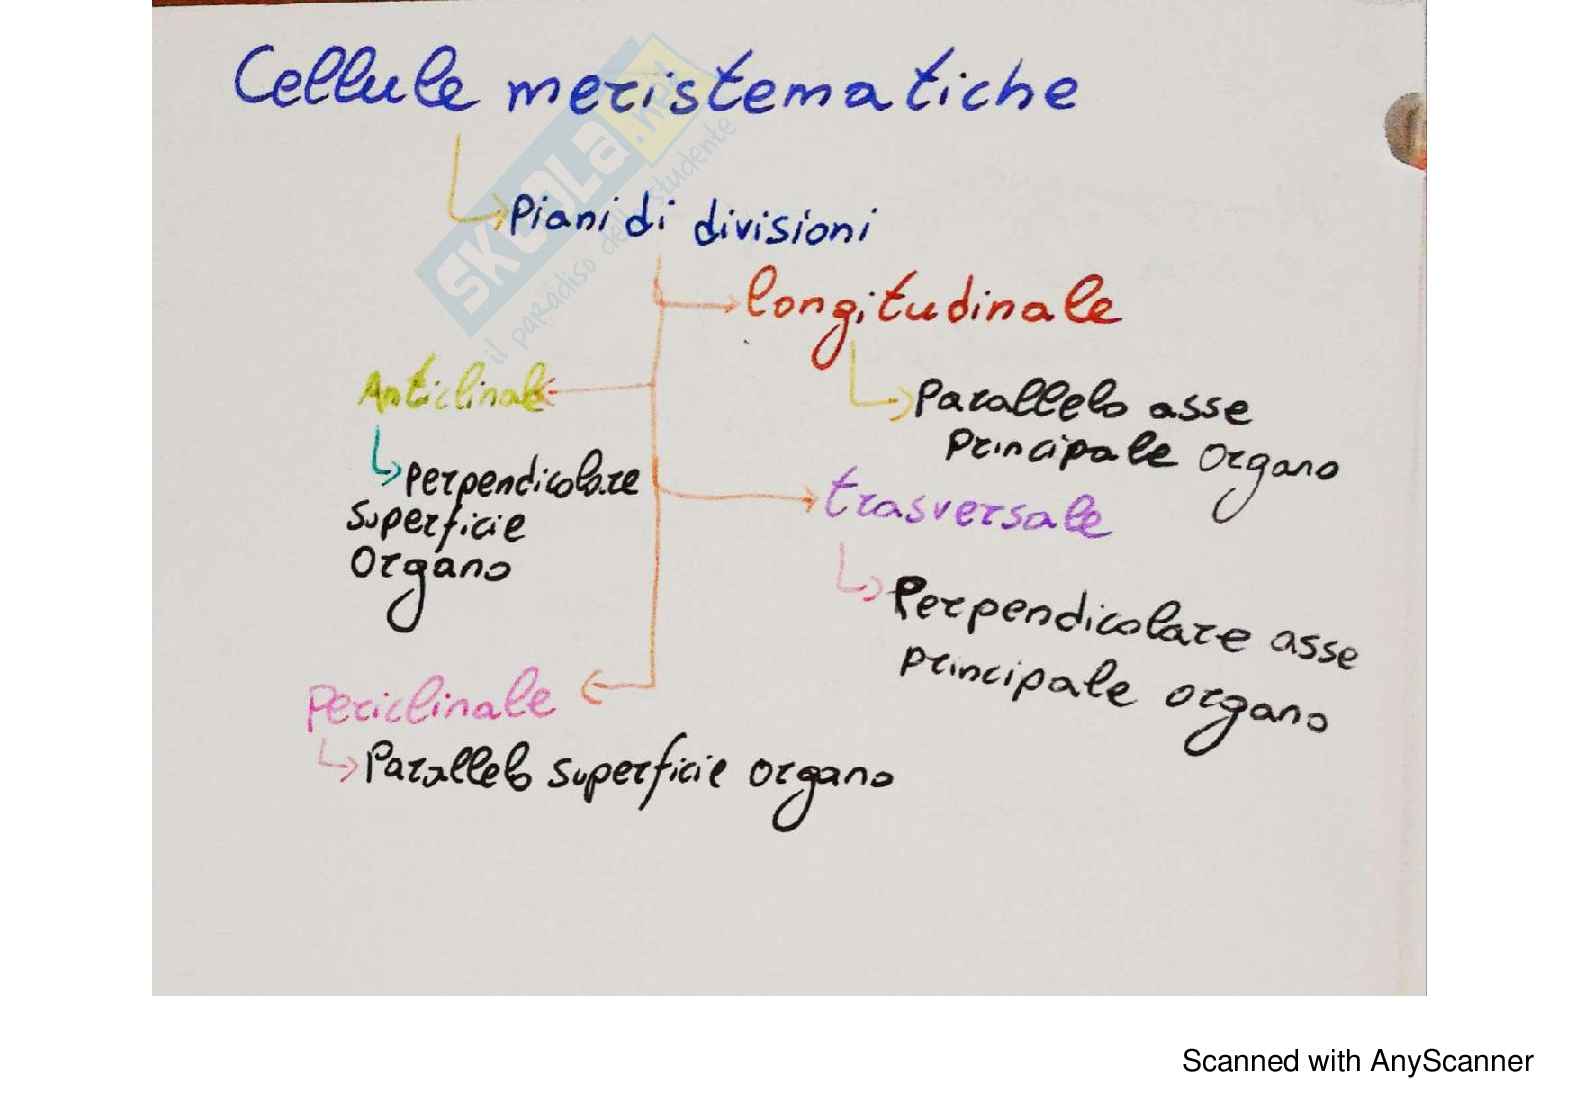 Cellule meristematiche
Piani di divisioni
longitudinale
Parallelo asse
principale organo
Anticlinale
perpendicolare
superficie
organo
trasversale
Perpendicolare asse
principale organo
periclinale
Parallelo superficie organo
SKUOLA.net
il paradiso dello studente
Scanned with AnyScanner